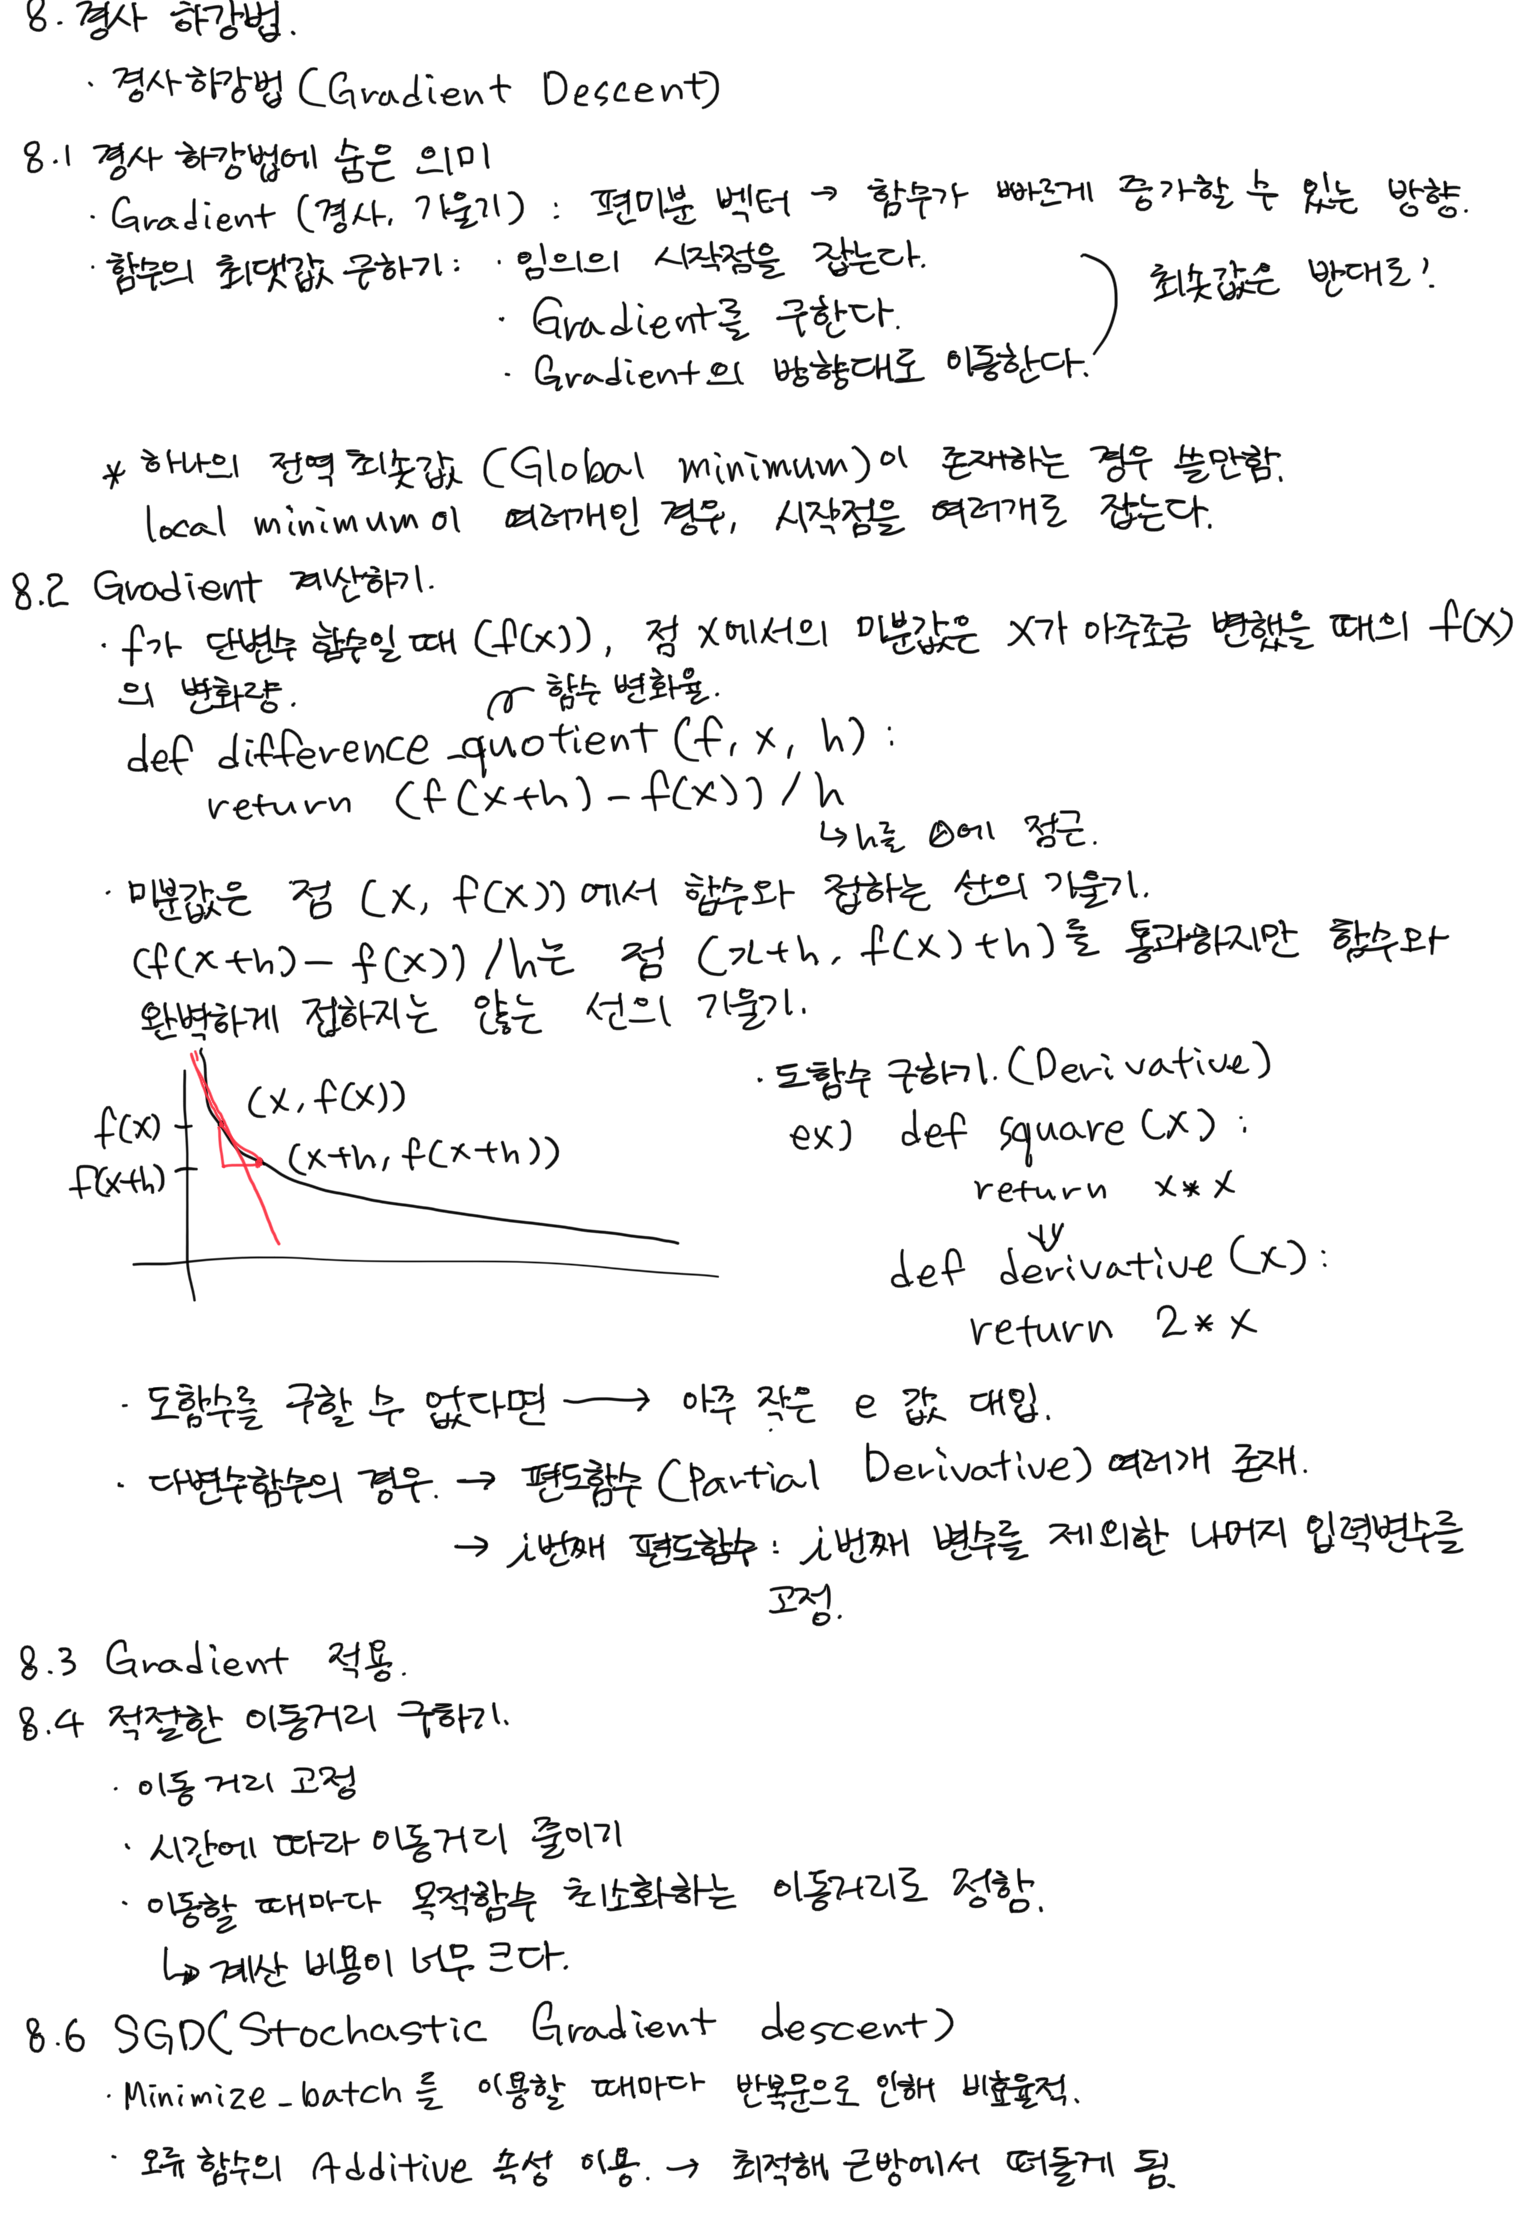 8. 경사 하강법.
· 경사하강법 (Gradient Descent)
8.1 경사 하강법에 숨은 의미
· Gradient (경사, 기울기) : 편미분 벡터 → 함수가 빠르게 증가할 수 있는 방향.
· 함수의 최댓값 구하기 : · 임의의 시작점을 잡는다.
· Gradient를 구한다.
· Gradient의 방향대로 이동한다.
최솟값은 반대로!
* 하나의 전역 최솟값 (Global minimum)이 존재하는 경우 쓸만함.
local minimum이 여러개인 경우, 시작점을 여러개로 잡는다.
8.2 Gradient 계산하기.
· f가 단변수 함수일 때 (f(x)), 점 x에서의 미분값은 x가 아주조금 변했을 때의 f(x)
의 변화량.
함수 변화율.
def difference_quotient (f, x, h) :
return (f(x+h) - f(x)) / h
↳ h를 0에 점근.
· 미분값은 점 (x, f(x))에서 함수와 접하는 선의 기울기.
(f(x+h) - f(x)) /h는 점 (x+h, f(x)+h)를 통과하지만 함수와
완벽하게 접하지는 않는 선의 기울기.
(x, f(x))
f(x)
(x+h, f(x+h))
f(x+h)
· 도함수 구하기. (Derivative)
ex) def square (x) :
return x * x
↓
def derivative (x) :
return 2 * x
· 도함수를 구할 수 없다면 → 아주 작은 e 값 대입.
· 다변수함수의 경우. → 편도함수 (Partial Derivative) 여러개 존재.
→ i번째 편도함수 : i번째 변수를 제외한 나머지 입력변수를
고정.
8.3 Gradient 적용.
8.4 적절한 이동거리 구하기.
· 이동 거리 고정
· 시간에 따라 이동거리 줄이기
· 이동할 때마다 목적함수 최소화하는 이동거리로 정함.
↳ 계산 비용이 너무 크다.
8.6 SGD(Stochastic Gradient descent)
· Minimize_batch를 이용할 때마다 반복문으로 인해 비효율적.
· 오류 함수의 Additive 속성 이용. → 최적해 근방에서 떠돌게 됨.